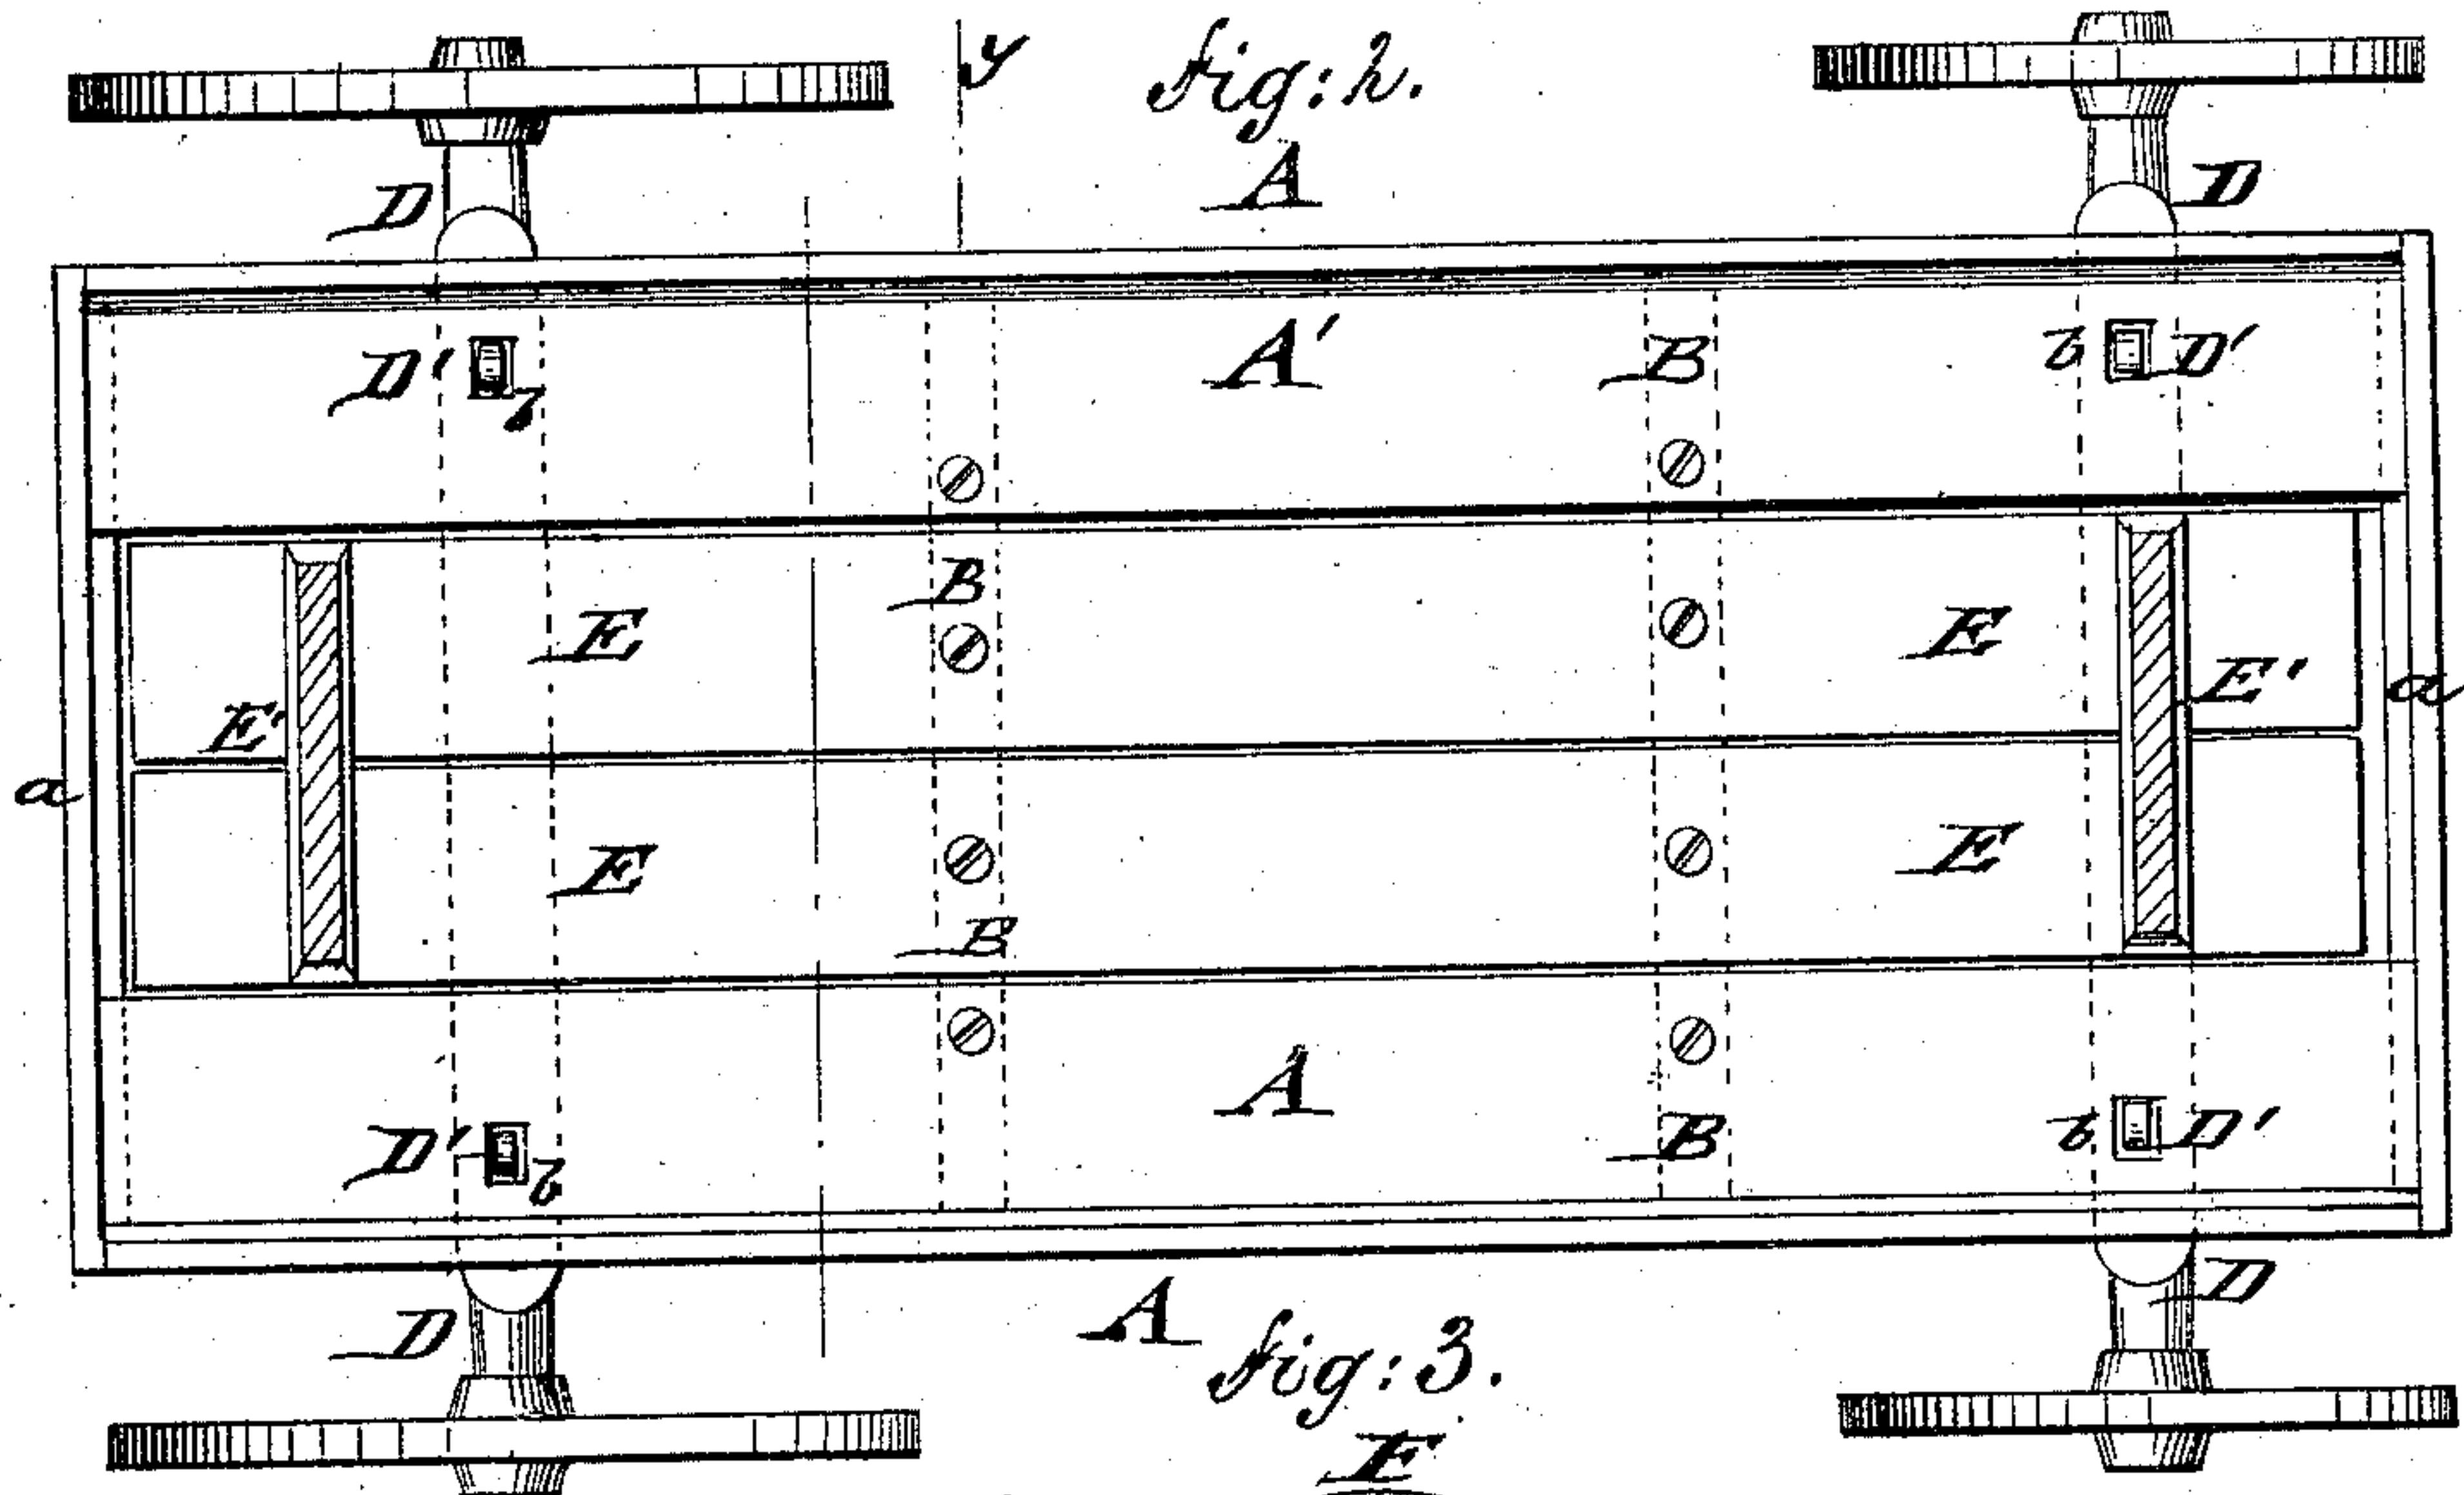 y Fig: 2.
A
D D
D' b A' B b D'
B
E E
E' E'
a a
E E
B
A
D' b B b D'
D A D
Fig: 3.
E